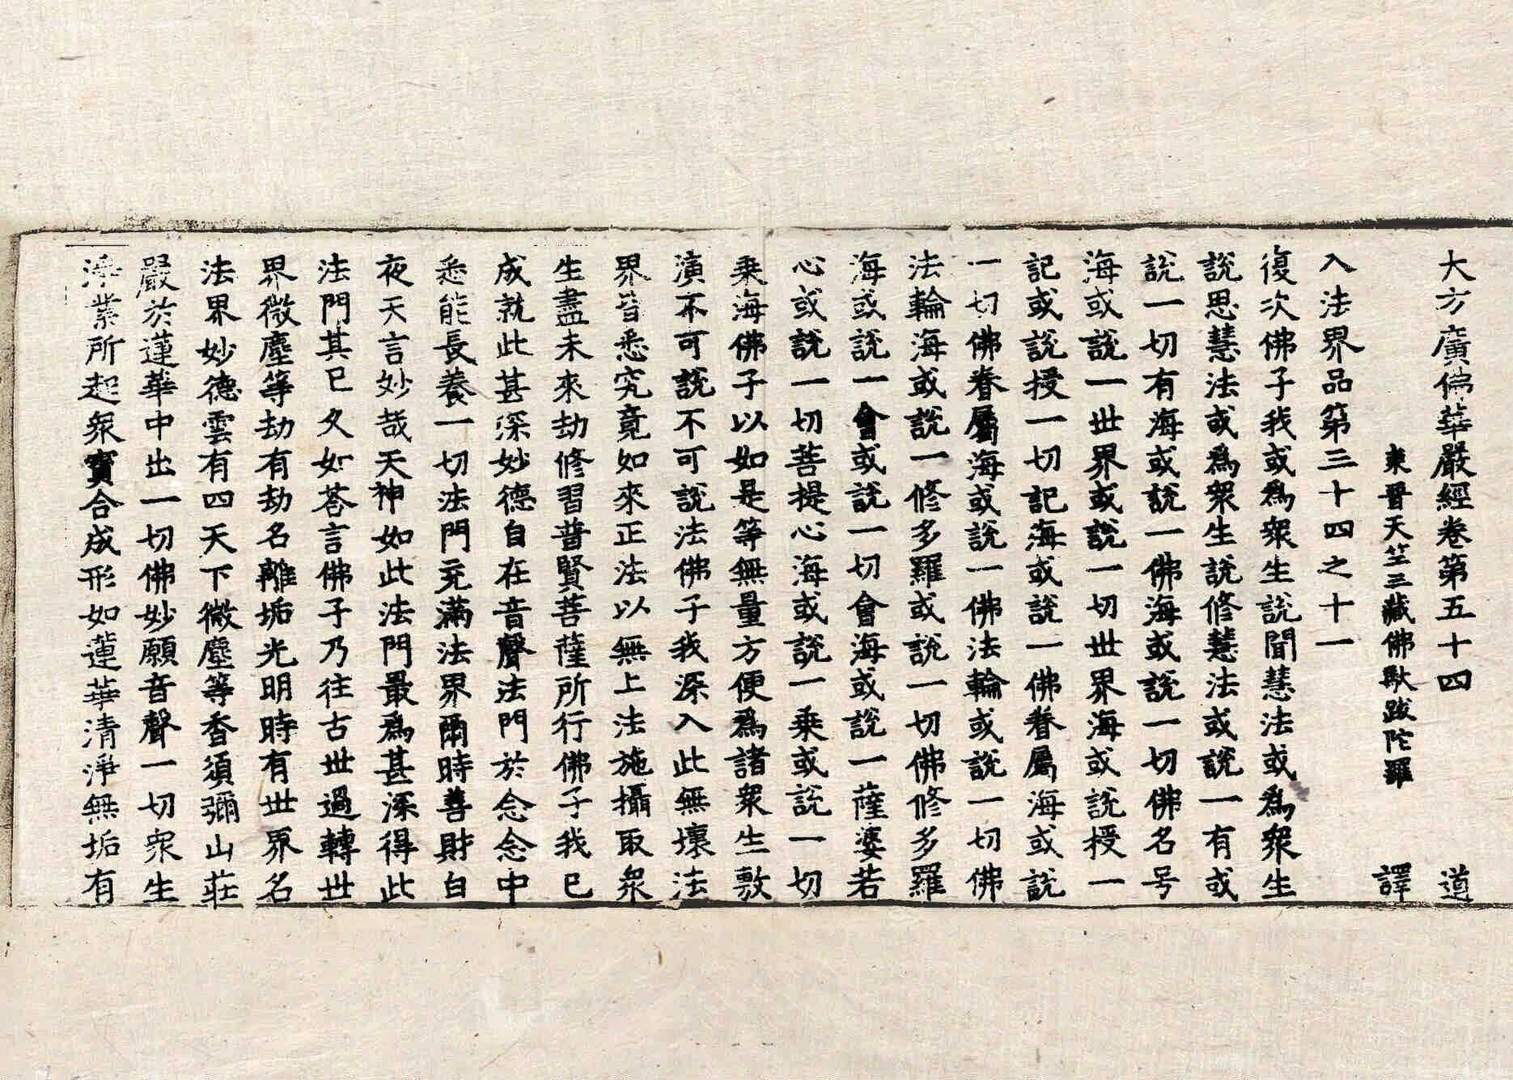 大方廣佛華嚴經卷第五十四 道
東晉天竺三藏佛馱跋陀羅 譯
入法界品第三十四之十一
復次佛子我或爲衆生說聞慧法或爲衆生
說思慧法或爲衆生說修慧法或說一有或
說一切有海或說一佛海或說一切佛名号
海或說一世界或說一切世界海或說授一
記或說授一切記海或說一佛眷屬海或說
一切佛眷屬海或說一佛法輪或說一切佛
法輪海或說一修多羅或說一切佛修多羅
海或說一會或說一切會海或說一薩婆若
心或說一切菩提心海或說一乘或說一切
乘海佛子以如是等無量方便爲諸衆生敷
演不可說不可說法佛子我深入此無壞法
界皆悉究竟如來正法以無上法施攝取衆
生盡未來劫修習普賢菩薩所行佛子我已
成就此甚深妙德自在音聲法門於念念中
悉能長養一切法門充滿法界爾時善財白
夜天言妙哉天神如此法門最爲甚深得此
法門其已久如荅言佛子乃往古世過轉世
界微塵等劫有劫名離垢光明時有世界名
法界妙德雲有四天下微塵等香須彌山莊
嚴於蓮華中出一切佛妙願音聲一切衆生
淨業所起衆寶合成形如蓮華清淨無垢有